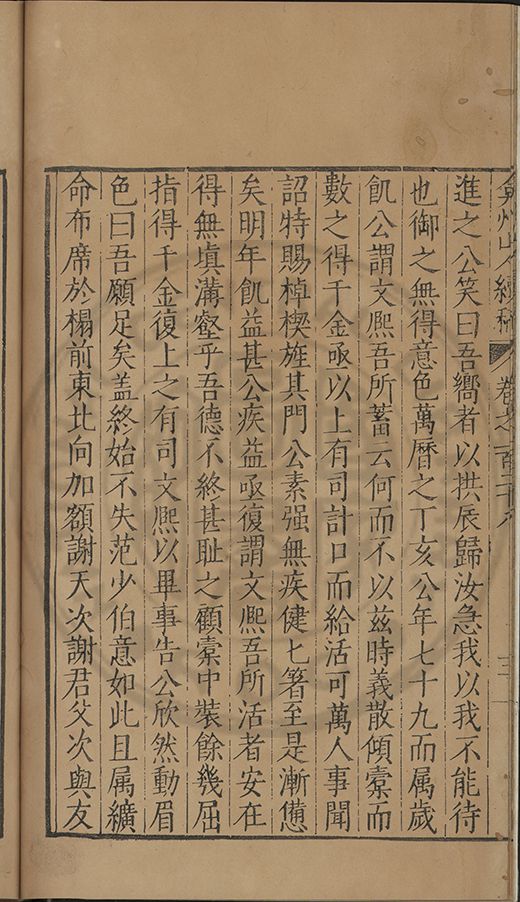 進之公笑曰吾嚮者以拱辰歸汝急我以我不能待
也御之無得意色萬曆之丁亥公年七十九而属歲
飢公謂文熈吾所蓄云何而不以茲時義散傾橐而
數之得千金亟以上有司計口而給活可萬人事聞
詔特賜棹楔旌其門公素强無疾健匕箸至是漸憊
矣明年飢益甚公疾益亟復謂文熈吾所活者安在
得無填溝壑乎吾德不終甚耻之顧橐中裝餘幾屈
指得千金復上之有司文熈以畢事告公欣然動眉
色曰吾願足矣盖終始不失范少伯意如此且属纊
命布席於榻前東北向加額謝天次謝君父次與友